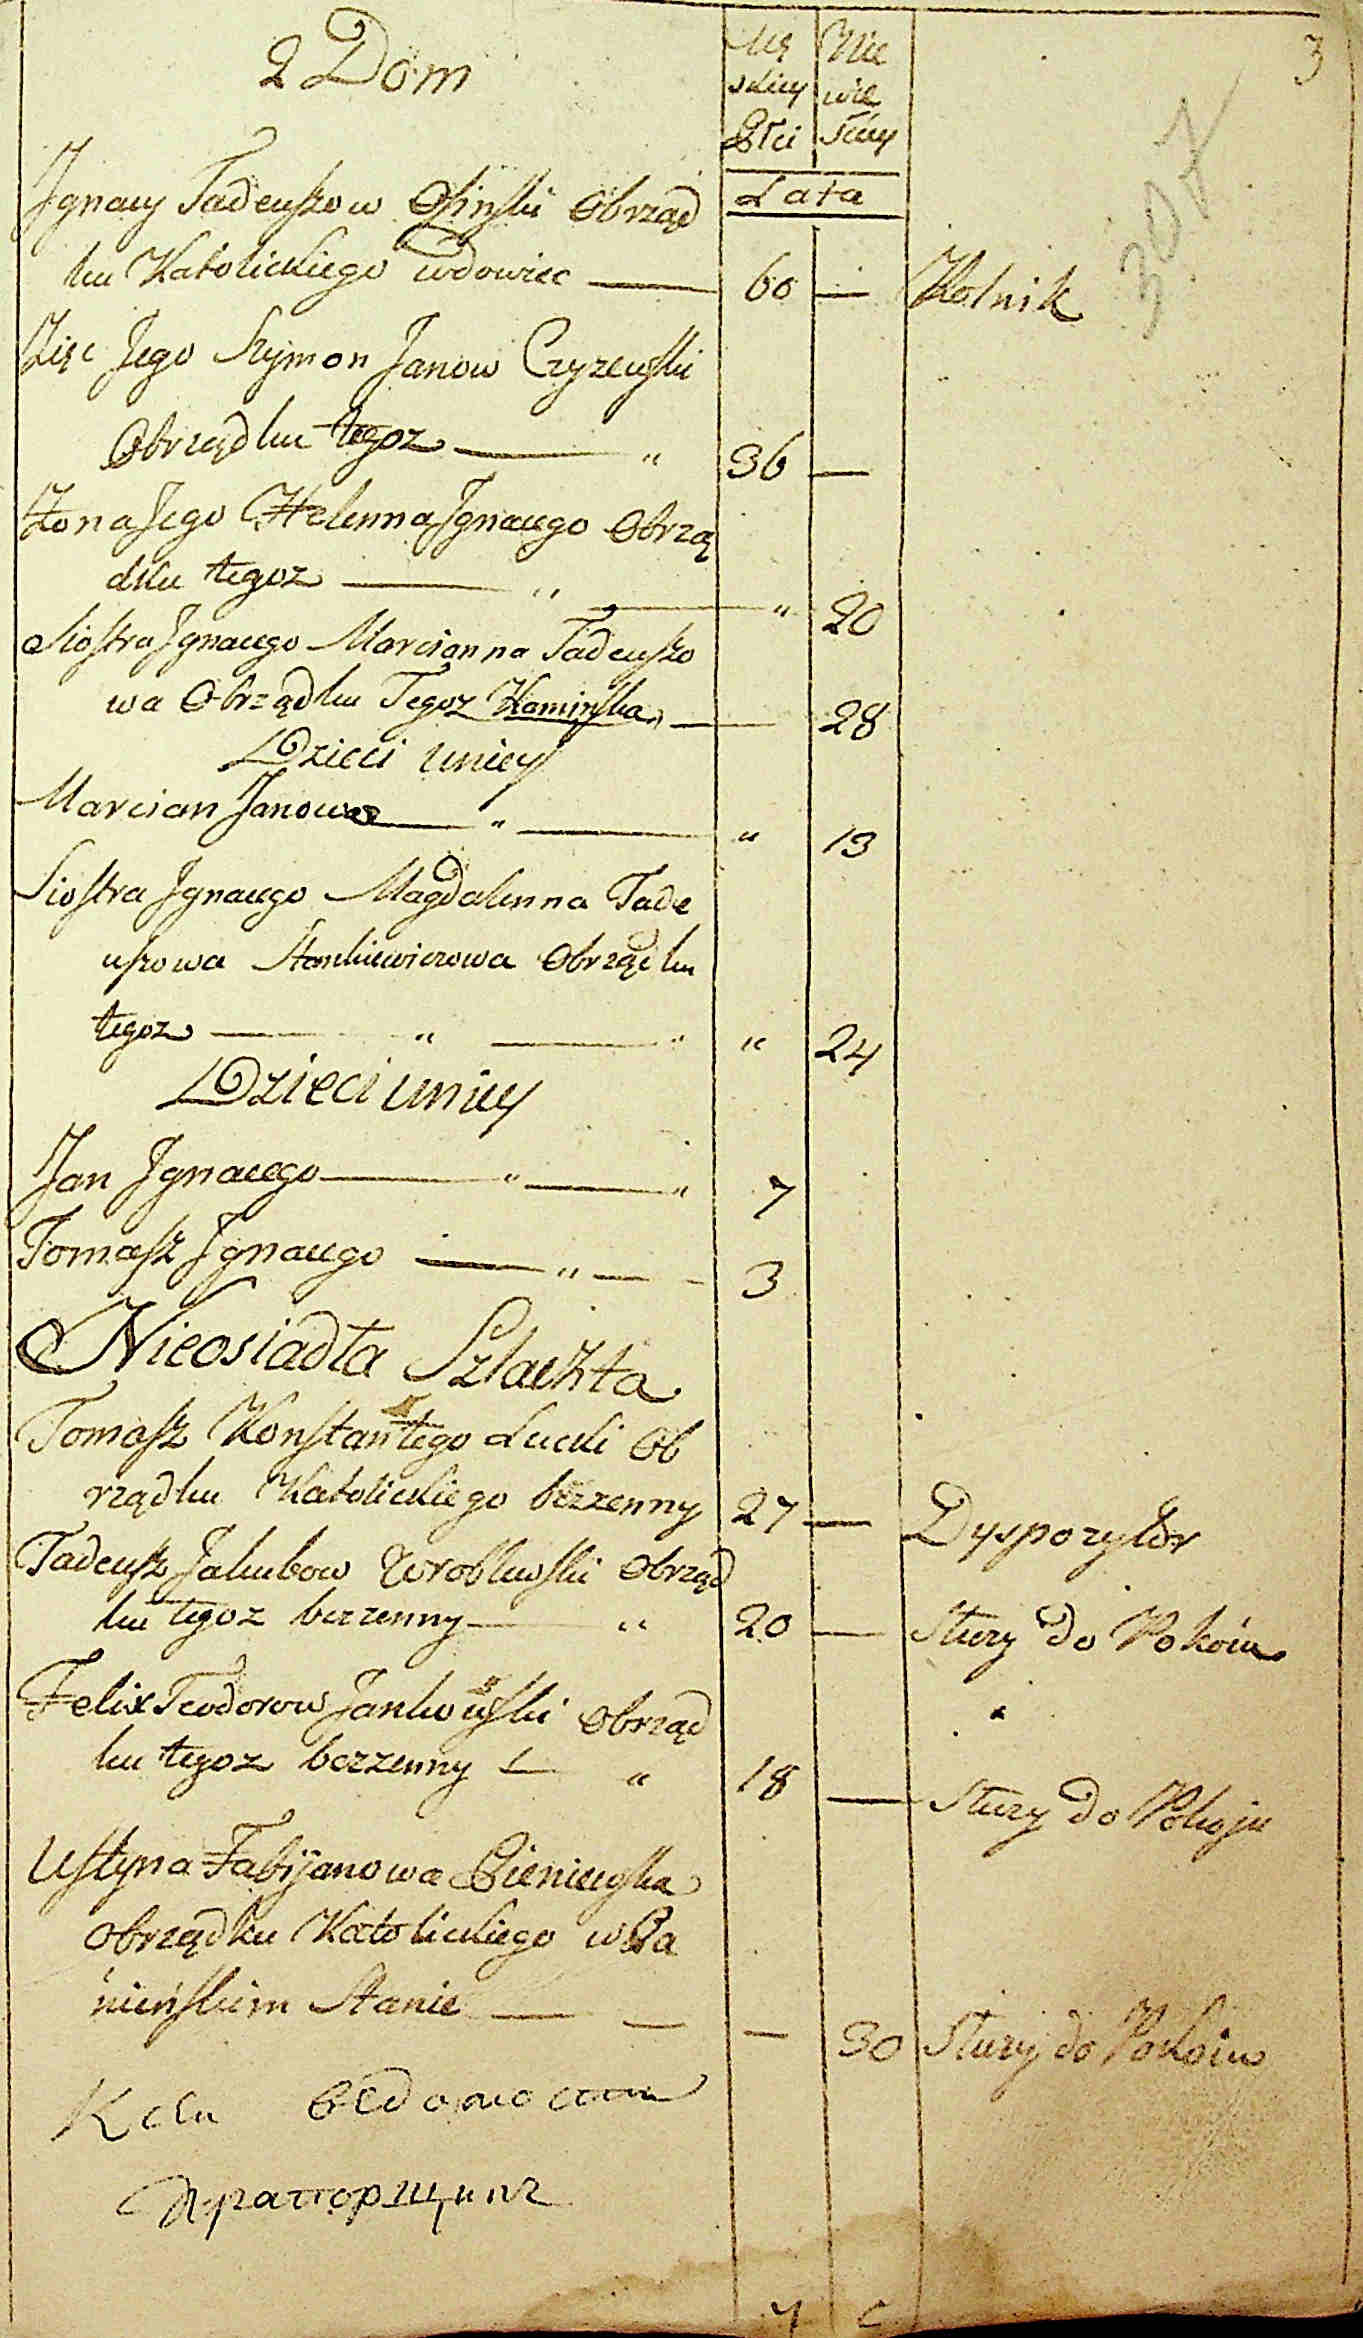 3
2 Dom
Mę Nie
skiey wie
Płci sciey
Lata
307
Jgnacy Tadeuszow Osinski Obrząd
ku Katolickiego wdowiec — 60 — Rolnik
Zięc Jego Szymon Janow Czyzewski
Obrządku tegoz — " 36 —
Żona Jego Helenna Jgnacego Obrzą
dku tegoz — " — " 20
Siostra Jgnacego Marcianna Tadeuszo
wa Obrządku Tegoz Kaminska — 28
Dzieci Jnicy
Marcian Janowa — " — " 13
Siostra Jgnacego Magdalenna Tade
uszowa Stankiewiczowa Obrządku
tegoz — " — " " 24
Dzieci Jnicy
Jan Jgnacego — " — " 7
Tomasz Jgnacego — " — - 3
Nieosiadła Szlachta
Tomasz Konstantego Łucki Ob
rządku Katolickiego bezzenny 27 — Dyspozytor
Tadeusz Jakubow Wroblewski Obrząd
ku tegoz bezzenny — " 20 — Służy do Pokoiu
Felix Teodorow Jankowski Obrząd
ku tegoz bezzenny — " 18 — Służy do Pokoju
Ustyna Fabijanowa Bieniewska
Obrządku Katolickiego w Pa
nieńskim Stanie — — — 30 Służy do Pokoiu
Прапорщикъ